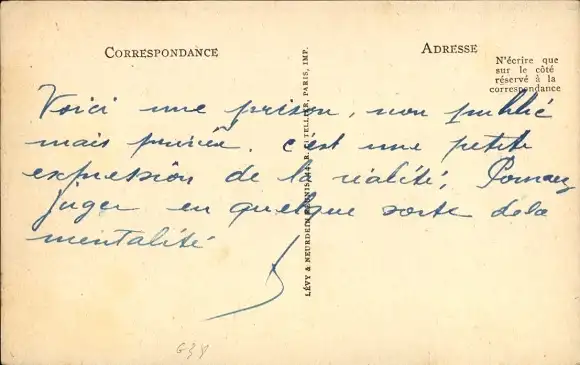 CORRESPONDANCE
ADRESSE
N'écrire que
sur le côté
réservé à la
correspondance
Voici une prison, non publié
mais privée. c'est une petite
expression de la réalité;
juger en quelque sorte de la
mentalité
LÉVY & NEURDEIN RÉUNIS, 44, R. LETELLIER, PARIS, IMP.